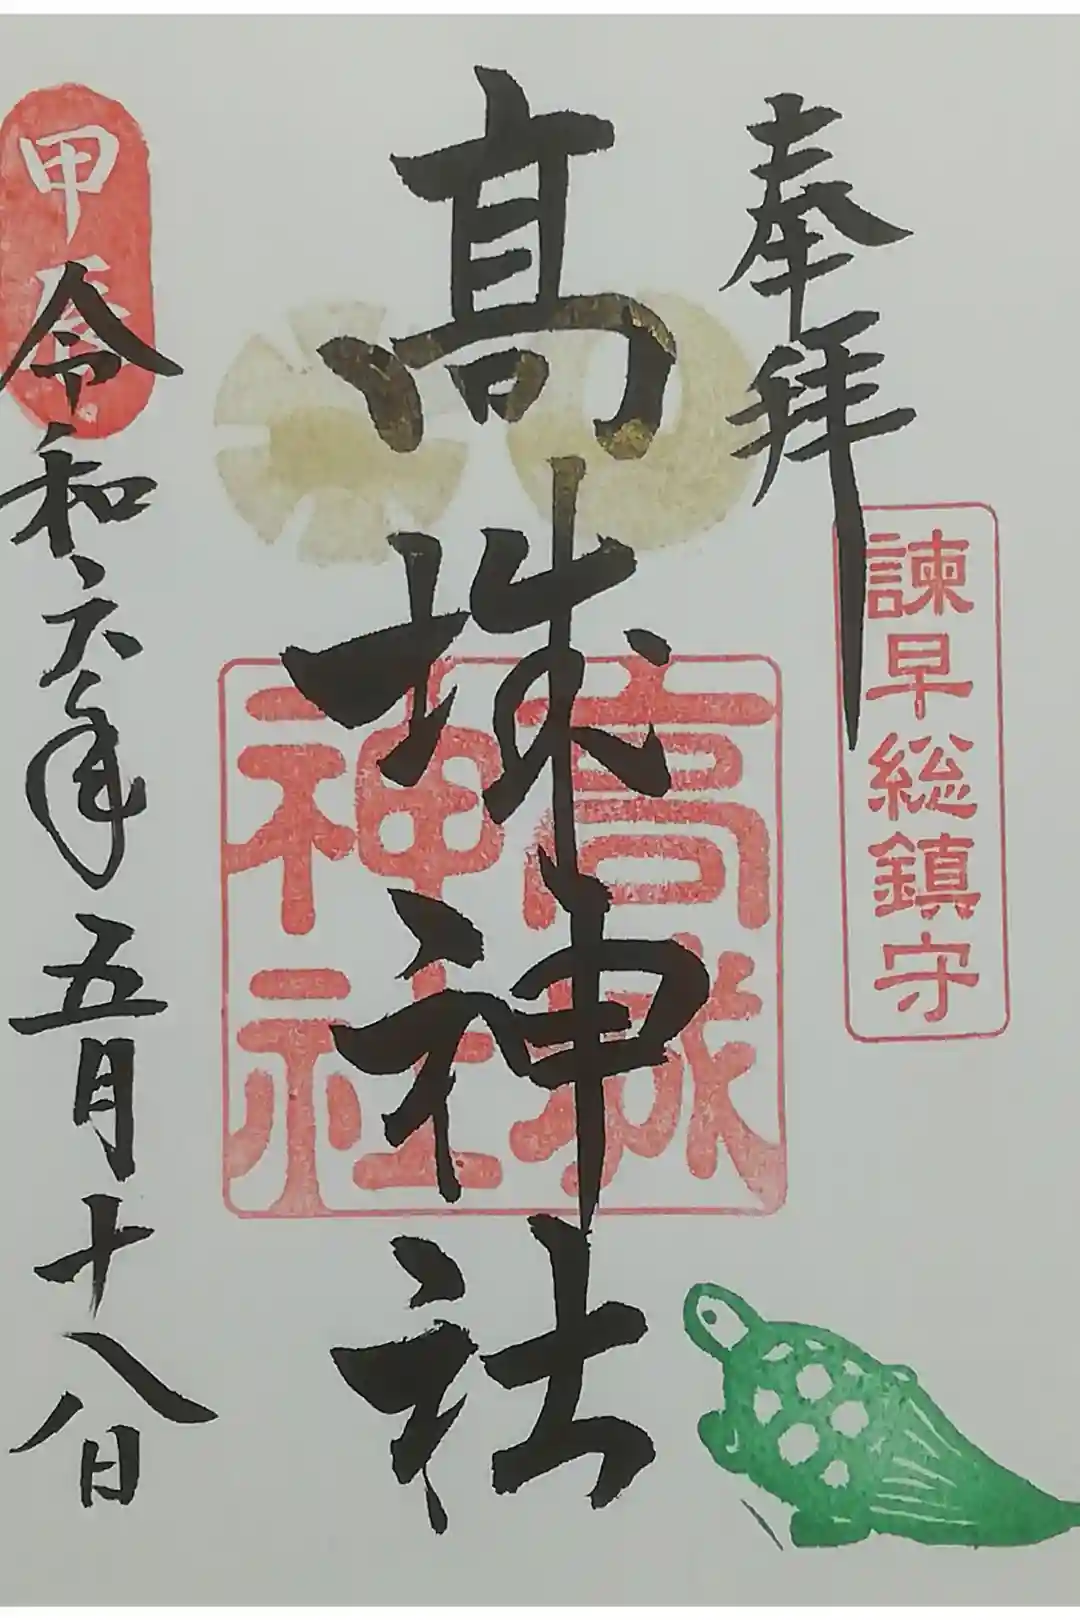 奉拝
諫早総鎮守
髙城神社
高城神社
甲辰
令和六年五月十八日